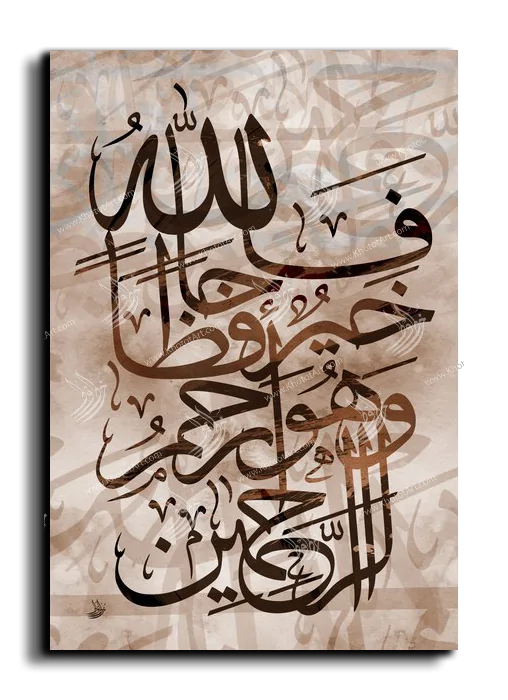 فَاللهُ
خَيْرٌ حَافِظًا
وَهُوَ أَرْحَمُ
الرَّاحِمِينَ
www.KhototArt.com